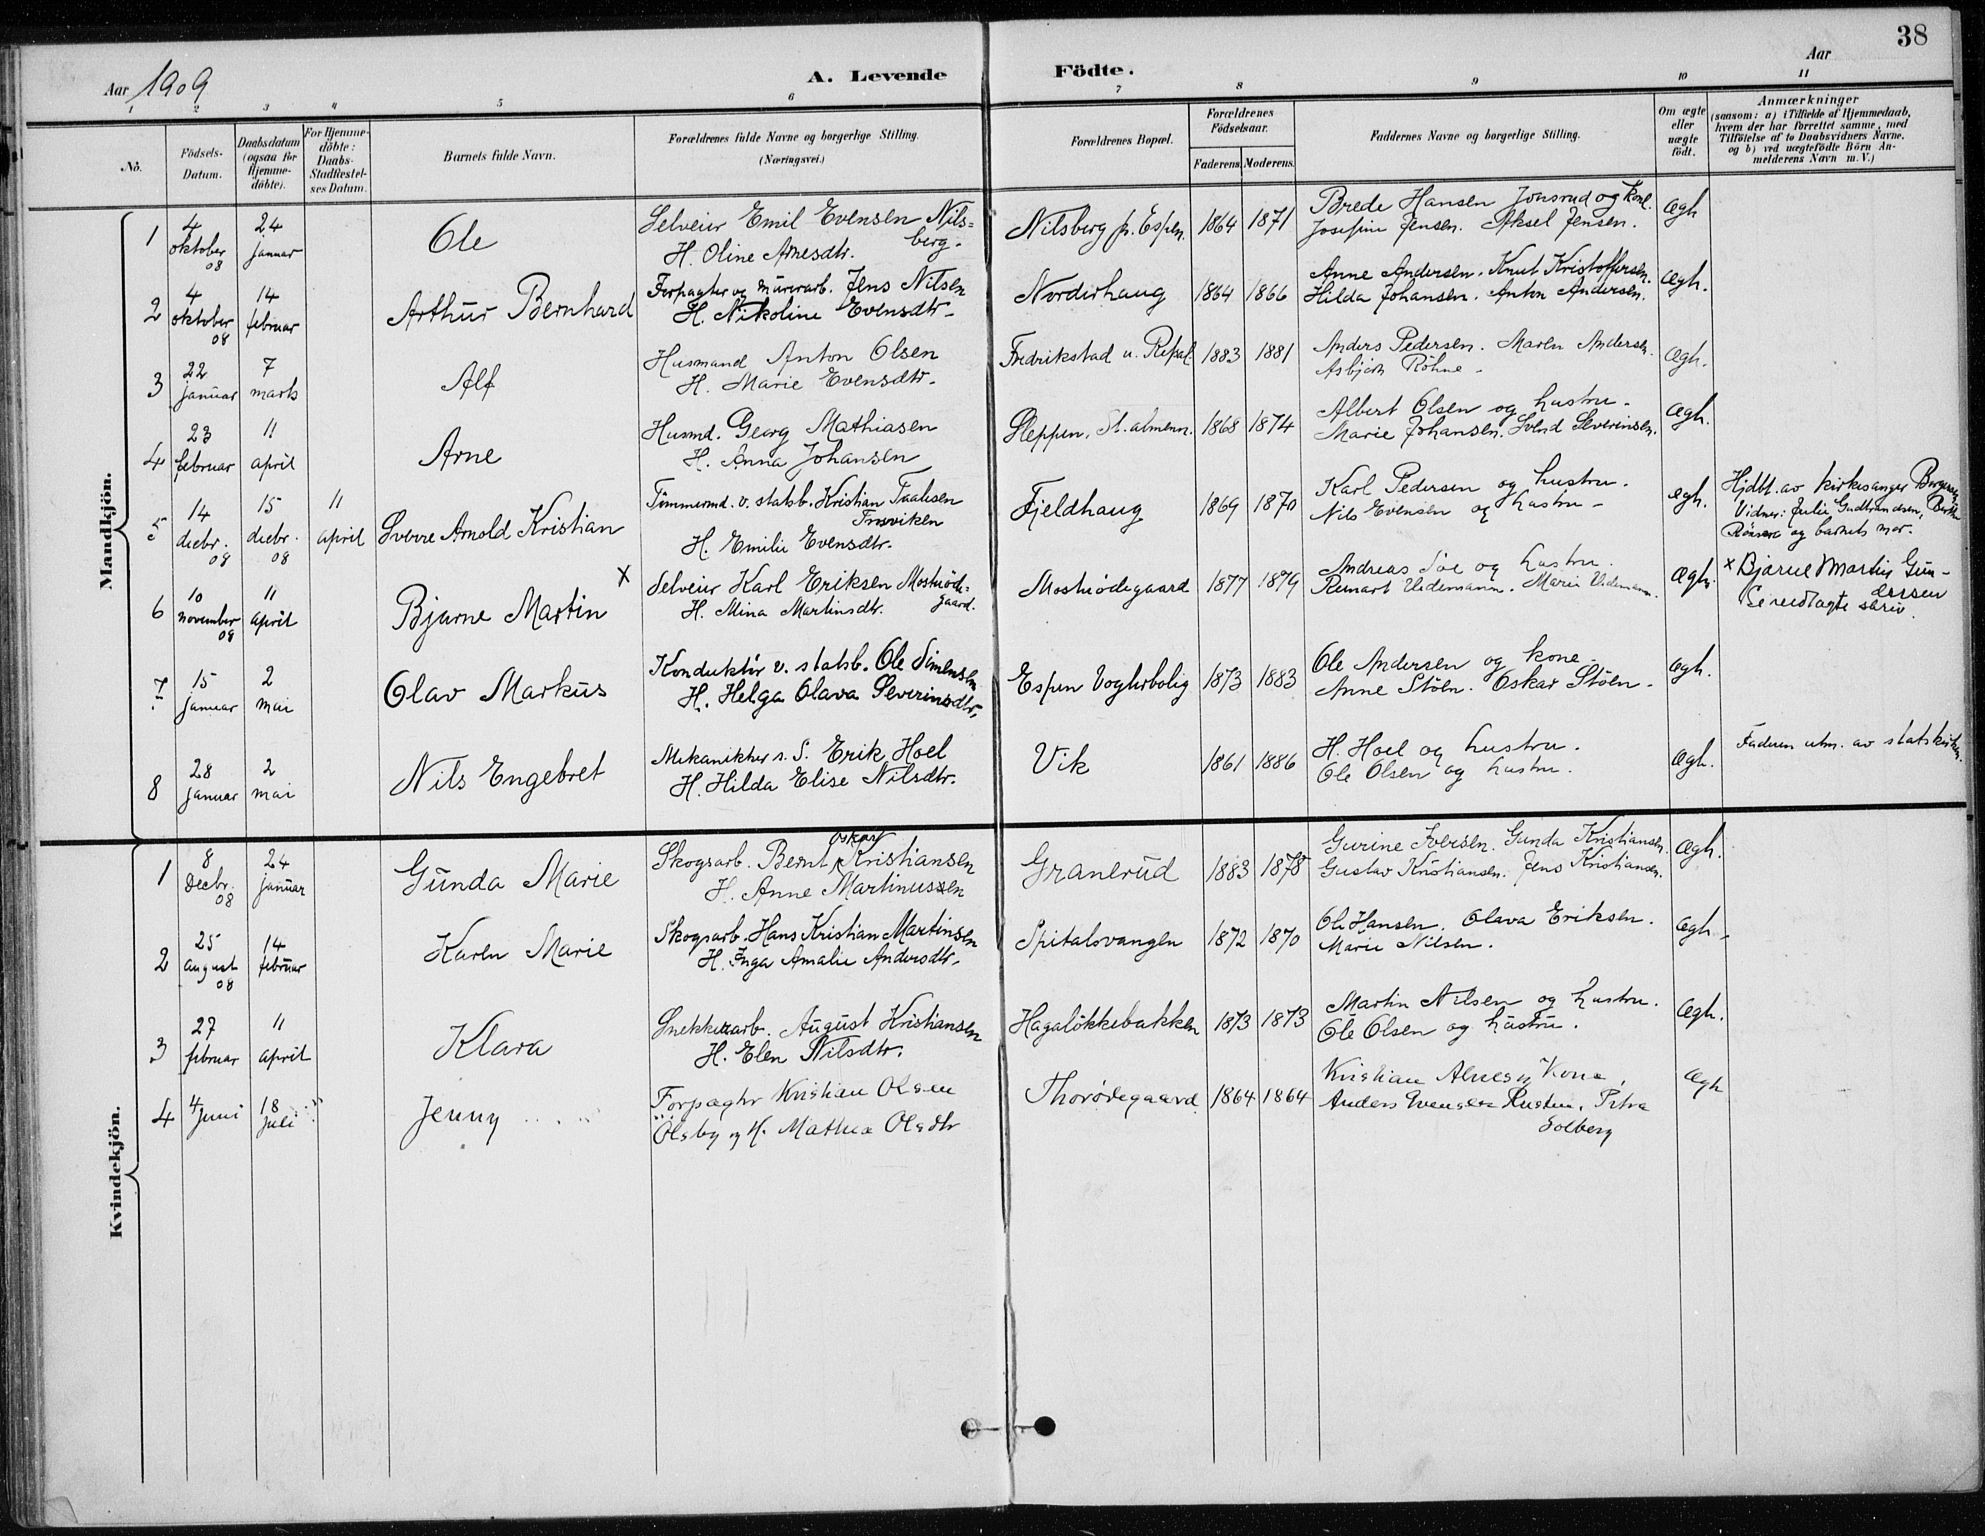 38
Aar 1909
A. Levende Födte.
Aar
1 2 3 4 5 6 7 8 9 10 11
No.
Födsels-Datum.
Daabsdatum (ogsaa för Hjemme-döbte).
For Hjemme-döbte: Daabs-Stadfæstel-ses Datum.
Barnets fulde Navn.
Forældrenes fulde Navne og borgerlige Stilling. (Næringsvei.)
Forældrenes Bopæl.
Forældrenes Födselsaar.
Faderens. Moderens.
Faddernes Navne og borgerlige Stilling.
Om ægte eller uægte födt.
Anmærkninger
(saasom: a) i Tilfælde af Hjemmedaab,
hvem der har forrettet samme, med
Tilföielse af to Daabsvidners Navne.
og b) ved uægtefödte Börn An-
melderens Navn m. V.)
Mandkjön.
1 4 oktober 08 24 januar Ole Selveier Emil Evensen Nils=berg. Nilsberg p. Espen. 1864 1871 Brede Hansen Jonsrud og kone. Ægh
H. Oline Arnesdtr. Josefine Jensen. Aksel Jensen.
2 4 oktober 08 14 februar Arthur Bernhard Forpagter og murerarb. Jens Nilsen Norderhaug 1864 1866 Anne Andersen. Knut Kristoffersen. Ægh.
H. Nikoline Evensdtr. Hilda Johansen. Anton Andersen.
3 22 januar 7 marts Alf Husmand Anton Olsen Fredrikstad u. 1883 1881 Anders Pedersen. Maren Andersen. Ægh.
H. Marie Evensdtr. Asbjørn Röhne.
4 23 februar 11 april Arne Husmd. Georg Mathiasen Sleppen, St. almenn. 1868 1874 Albert Olsen og hustru. Ægh.
H. Anna Johansen Marie Johansen. Svend Severinsen.
5 14 decbr. 08 15 decbr. 08 11 april Sverre Arnold Kristian Tömmermd. v. statsb. Kristian Fjeldhaug 1869 1870 Karl Pedersen og hustru. Ægh. Hjdbt. av kirkesanger
H. Emilie Evensdtr. Nils Evensen og hustru. Vidner: Julie Gudbrandsen,
og barnets mor.
6 10 november 08 11 april Bjarne Martin x Selveier Karl Eriksen Mostuöde-gaard. Mostuödegaard 1877 1879 Andreas og hustru. Ægh. x Bjarne Martin Gun-
H. Mina Martinsdtr. Marie dersen
Se vedlagte skriv.
7 15 januar 2 mai Olav Markus Konduktör v. statsb. Ole Simensen Espen Vogterbolig 1873 1883 Ole Andersen og kone. Ægh.
H. Helga Olava Severinsdtr. Anne Stöen. Oskar Stöen.
8 28 januar 2 mai Nils Engebret Mekaniker s. S. Erik Hoel Vik 1861 1886 H. Hoel og hustru. Ægh. Faderen utm. av statskirken.
H. Hilda Elise Nilsdtr. Ole Olsen og hustru.
Kvindekjön.
1 8 Decbr. 08 24 januar Gunda Marie Skogsarb. Bernt Oskar Kristiansen Granerud 1883 1878 Gurine Iversen. Gunda Kristiansen. Ægh.
H. Anne Martinussen Gustav Kristiansen. Jens Kristiansen.
2 25 august 08 14 februar Karen Marie Skogsarb. Hans Kristian Martinsen Spitalsvangen 1872 1870 Ole Hansen. Olava Eriksen. Ægh.
H. Inga Amalie Andersdtr. Marie Nilsen.
3 27 februar 11 april Klara Snekkerarb. August Kristiansen Hagalökkebakken 1873 1873 Martin Nilsen og hustru. Ægh.
H. Elen Nilsdtr. Ole Olsen og hustru.
4 4 juni 18 juli Jenny Forpagter Kristian Olsen Thorödegaard 1864 1864 Kristian Alnes og Kone, Ægh
Olsby og H. Mathea Olsdtr Anders Evensen Rusten, Petra
Solberg